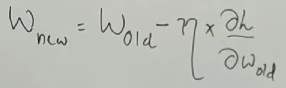 W_new = W_old - η × ∂h/∂w_old